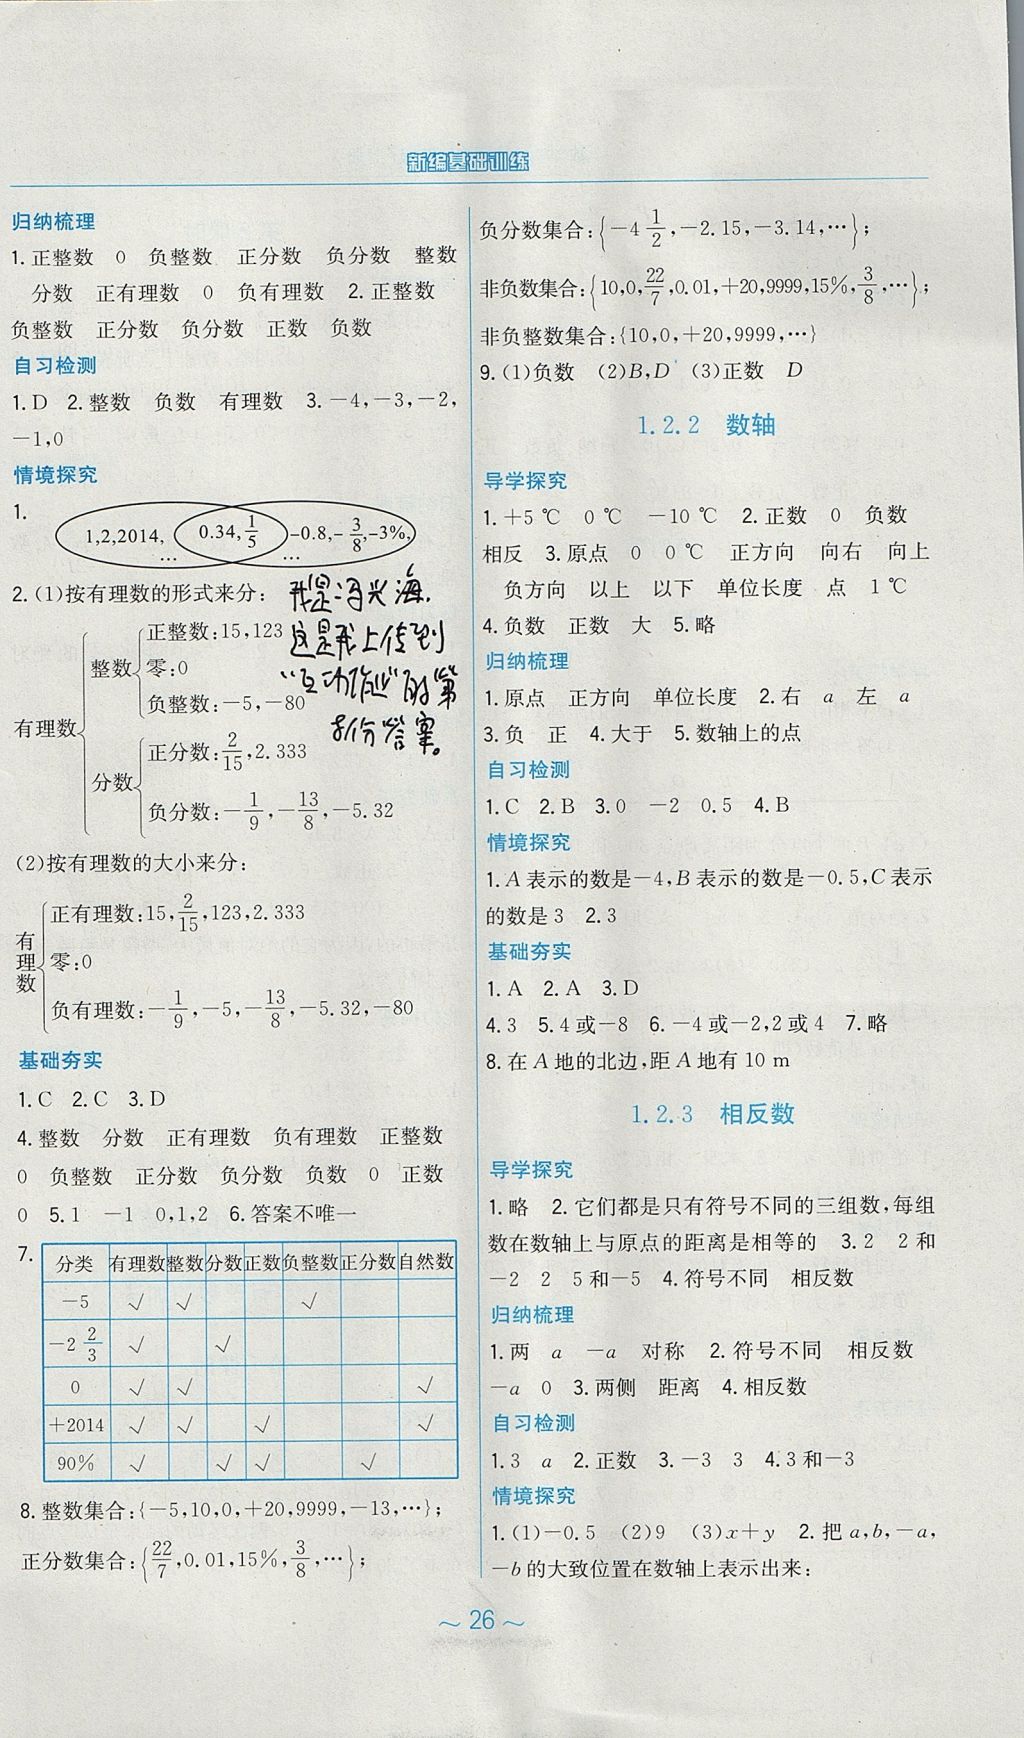 新编基础训练
归纳梳理
1.正整数 0 负整数 正分数 负分数 整数
分数 正有理数 0 负有理数 2.正整数
负整数 正分数 负分数 正数 负数
自习检测
1.D 2.整数 负数 有理数 3.-4,-3,-2,
-1,0
情境探究
1.
1,2,2014, … 0.34,1/5 -0.8,-3/8,-3%, …
2.(1)按有理数的形式来分:
我是冯兴海.
这是我上传到
“互动作业”的第
份答案。
有理数
整数
正整数:15,123
零:0
负整数:-5,-80
分数
正分数:2/15,2.333
负分数:-1/9,-13/8,-5.32
(2)按有理数的大小来分:
有理数
正有理数:15,2/15,123,2.333
零:0
负有理数:-1/9,-5,-13/8,-5.32,-80
基础夯实
1.C 2.C 3.D
4.整数 分数 正有理数 负有理数 正整数
0 负整数 正分数 负分数 负数 0 正数
0 5.1 -1 0,1,2 6.答案不唯一
7.
分类 有理数 整数 分数 正数 负整数 正分数 自然数
-5 √ √ √
-2 2/3 √ √
0 √ √ √
+2014 √ √ √ √
90% √ √ √ √
8.整数集合:{-5,10,0,+20,9999,-13,…};
正分数集合:{22/7,0.01,15%,3/8,…};
负分数集合:{-4 1/2,-2.15,-3.14,…};
非负数集合:{10,0,22/7,0.01,+20,9999,15%,3/8,…};
非负整数集合:{10,0,+20,9999,…}
9.(1)负数 (2)B,D (3)正数 D
1.2.2 数轴
导学探究
1.+5 ℃ 0 ℃ -10 ℃ 2.正数 0 负数
相反 3.原点 0 0 ℃ 正方向 向右 向上
负方向 以上 以下 单位长度 点 1 ℃
4.负数 正数 大 5.略
归纳梳理
1.原点 正方向 单位长度 2.右 a 左 a
3.负 正 4.大于 5.数轴上的点
自习检测
1.C 2.B 3.0 -2 0.5 4.B
情境探究
1.A表示的数是-4,B表示的数是-0.5,C表示
的数是3 2.3
基础夯实
1.A 2.A 3.D
4.3 5.4或-8 6.-4或-2,2或4 7.略
8.在A地的北边,距A地有10 m
1.2.3 相反数
导学探究
1.略 2.它们都是只有符号不同的三组数,每组
数在数轴上与原点的距离是相等的 3.2 2和
-2 2 5和-5 4.符号不同 相反数
归纳梳理
1.两 a -a 对称 2.符号不同 相反数
-a 0 3.两侧 距离 4.相反数
自习检测
1.3 a 2.正数 3.-3 3 4.3和-3
情境探究
1.(1)-0.5 (2)9 (3)x+y 2.把a,b,-a,
-b的大致位置在数轴上表示出来:
~ 26 ~